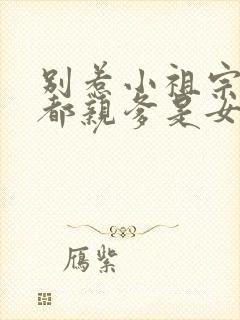 别惹小祖宗
都亲爹是女
雁紫